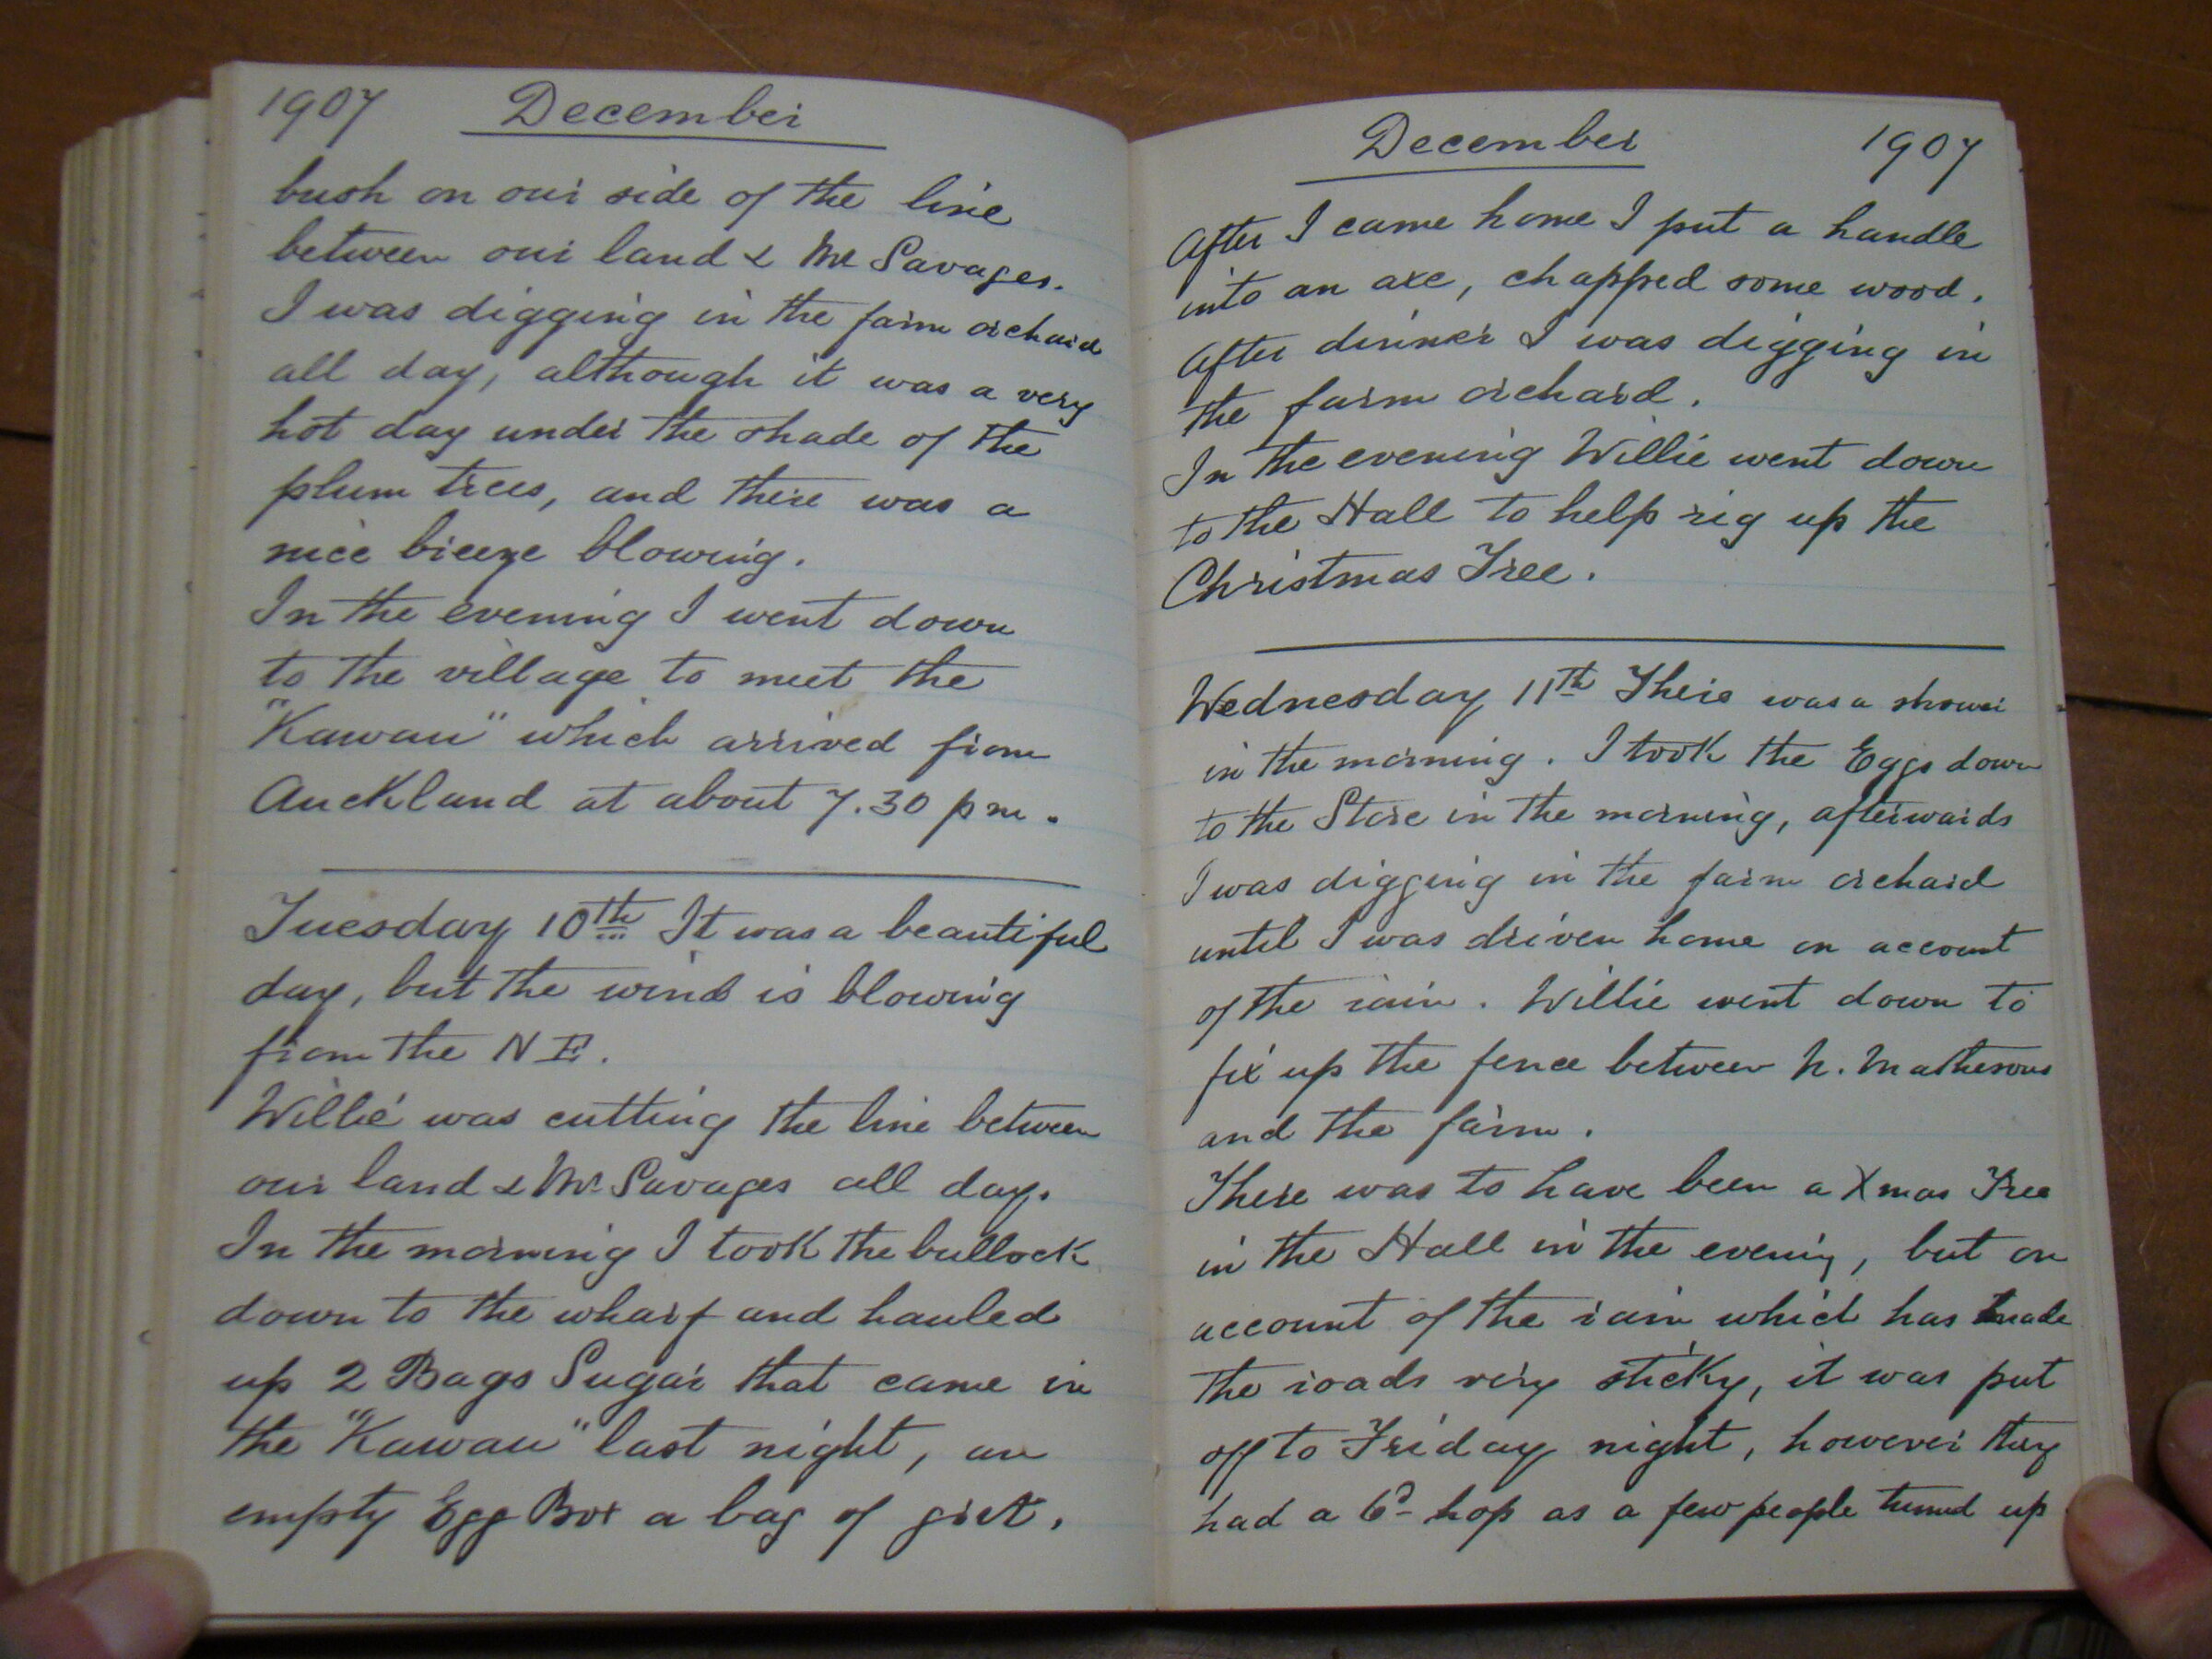 1907 December
bush on our side of the line
between our land & Mr Savages.
I was digging in the farm orchard
all day, although it was a very
hot day under the shade of the
plum trees, and there was a
nice breeze blowing.
In the evening I went down
to the village to meet the
"Kawau" which arrived from
Auckland at about 7.30 pm.
Tuesday 10th It was a beautiful
day, but the wind is blowing
from the N E.
Willie was cutting the line between
our land & Mr Savages all day.
In the morning I took the bullock
down to the wharf and hauled
up 2 Bags Sugar that came in
the "Kawau" last night, an
empty Egg Box a bag of grit.
December 1907
After I came home I put a handle
into an axe, chopped some wood.
After dinner I was digging in
the farm orchard.
In the evening Willie went down
to the Hall to help rig up the
Christmas Tree.
Wednesday 11th There was a shower
in the morning. I took the Eggs down
to the Store in the morning, afterwards
I was digging in the farm orchard
until I was driven home on account
of the rain. Willie went down to
fix up the fence between N. Mathesons
and the farm.
There was to have been a Xmas Tree
in the Hall in the evening, but on
account of the rain which has made
the roads very sticky, it was put
off to Friday night, however they
had a 6d hop as a few people turned up